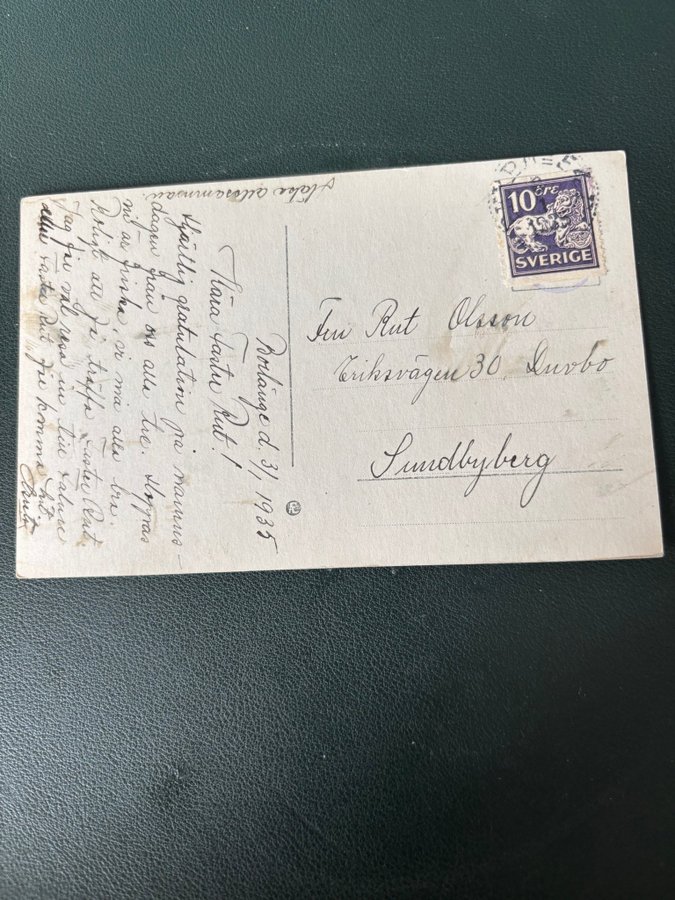 10 öre
SVERIGE
Fru Rut Olsson
Eriksvägen 30, Duvbo
Sundbyberg
Borlänge d. 3/1 1935
Kära Faster Rut!
Hjärtlig gratulation på namns-
dagen från oss alla tre. Hoppas
ni är friska, vi må alla bra.
Roligt att få träffa Faster Rut.
Jag får väl resa in till
Faster Rut får komma hit.